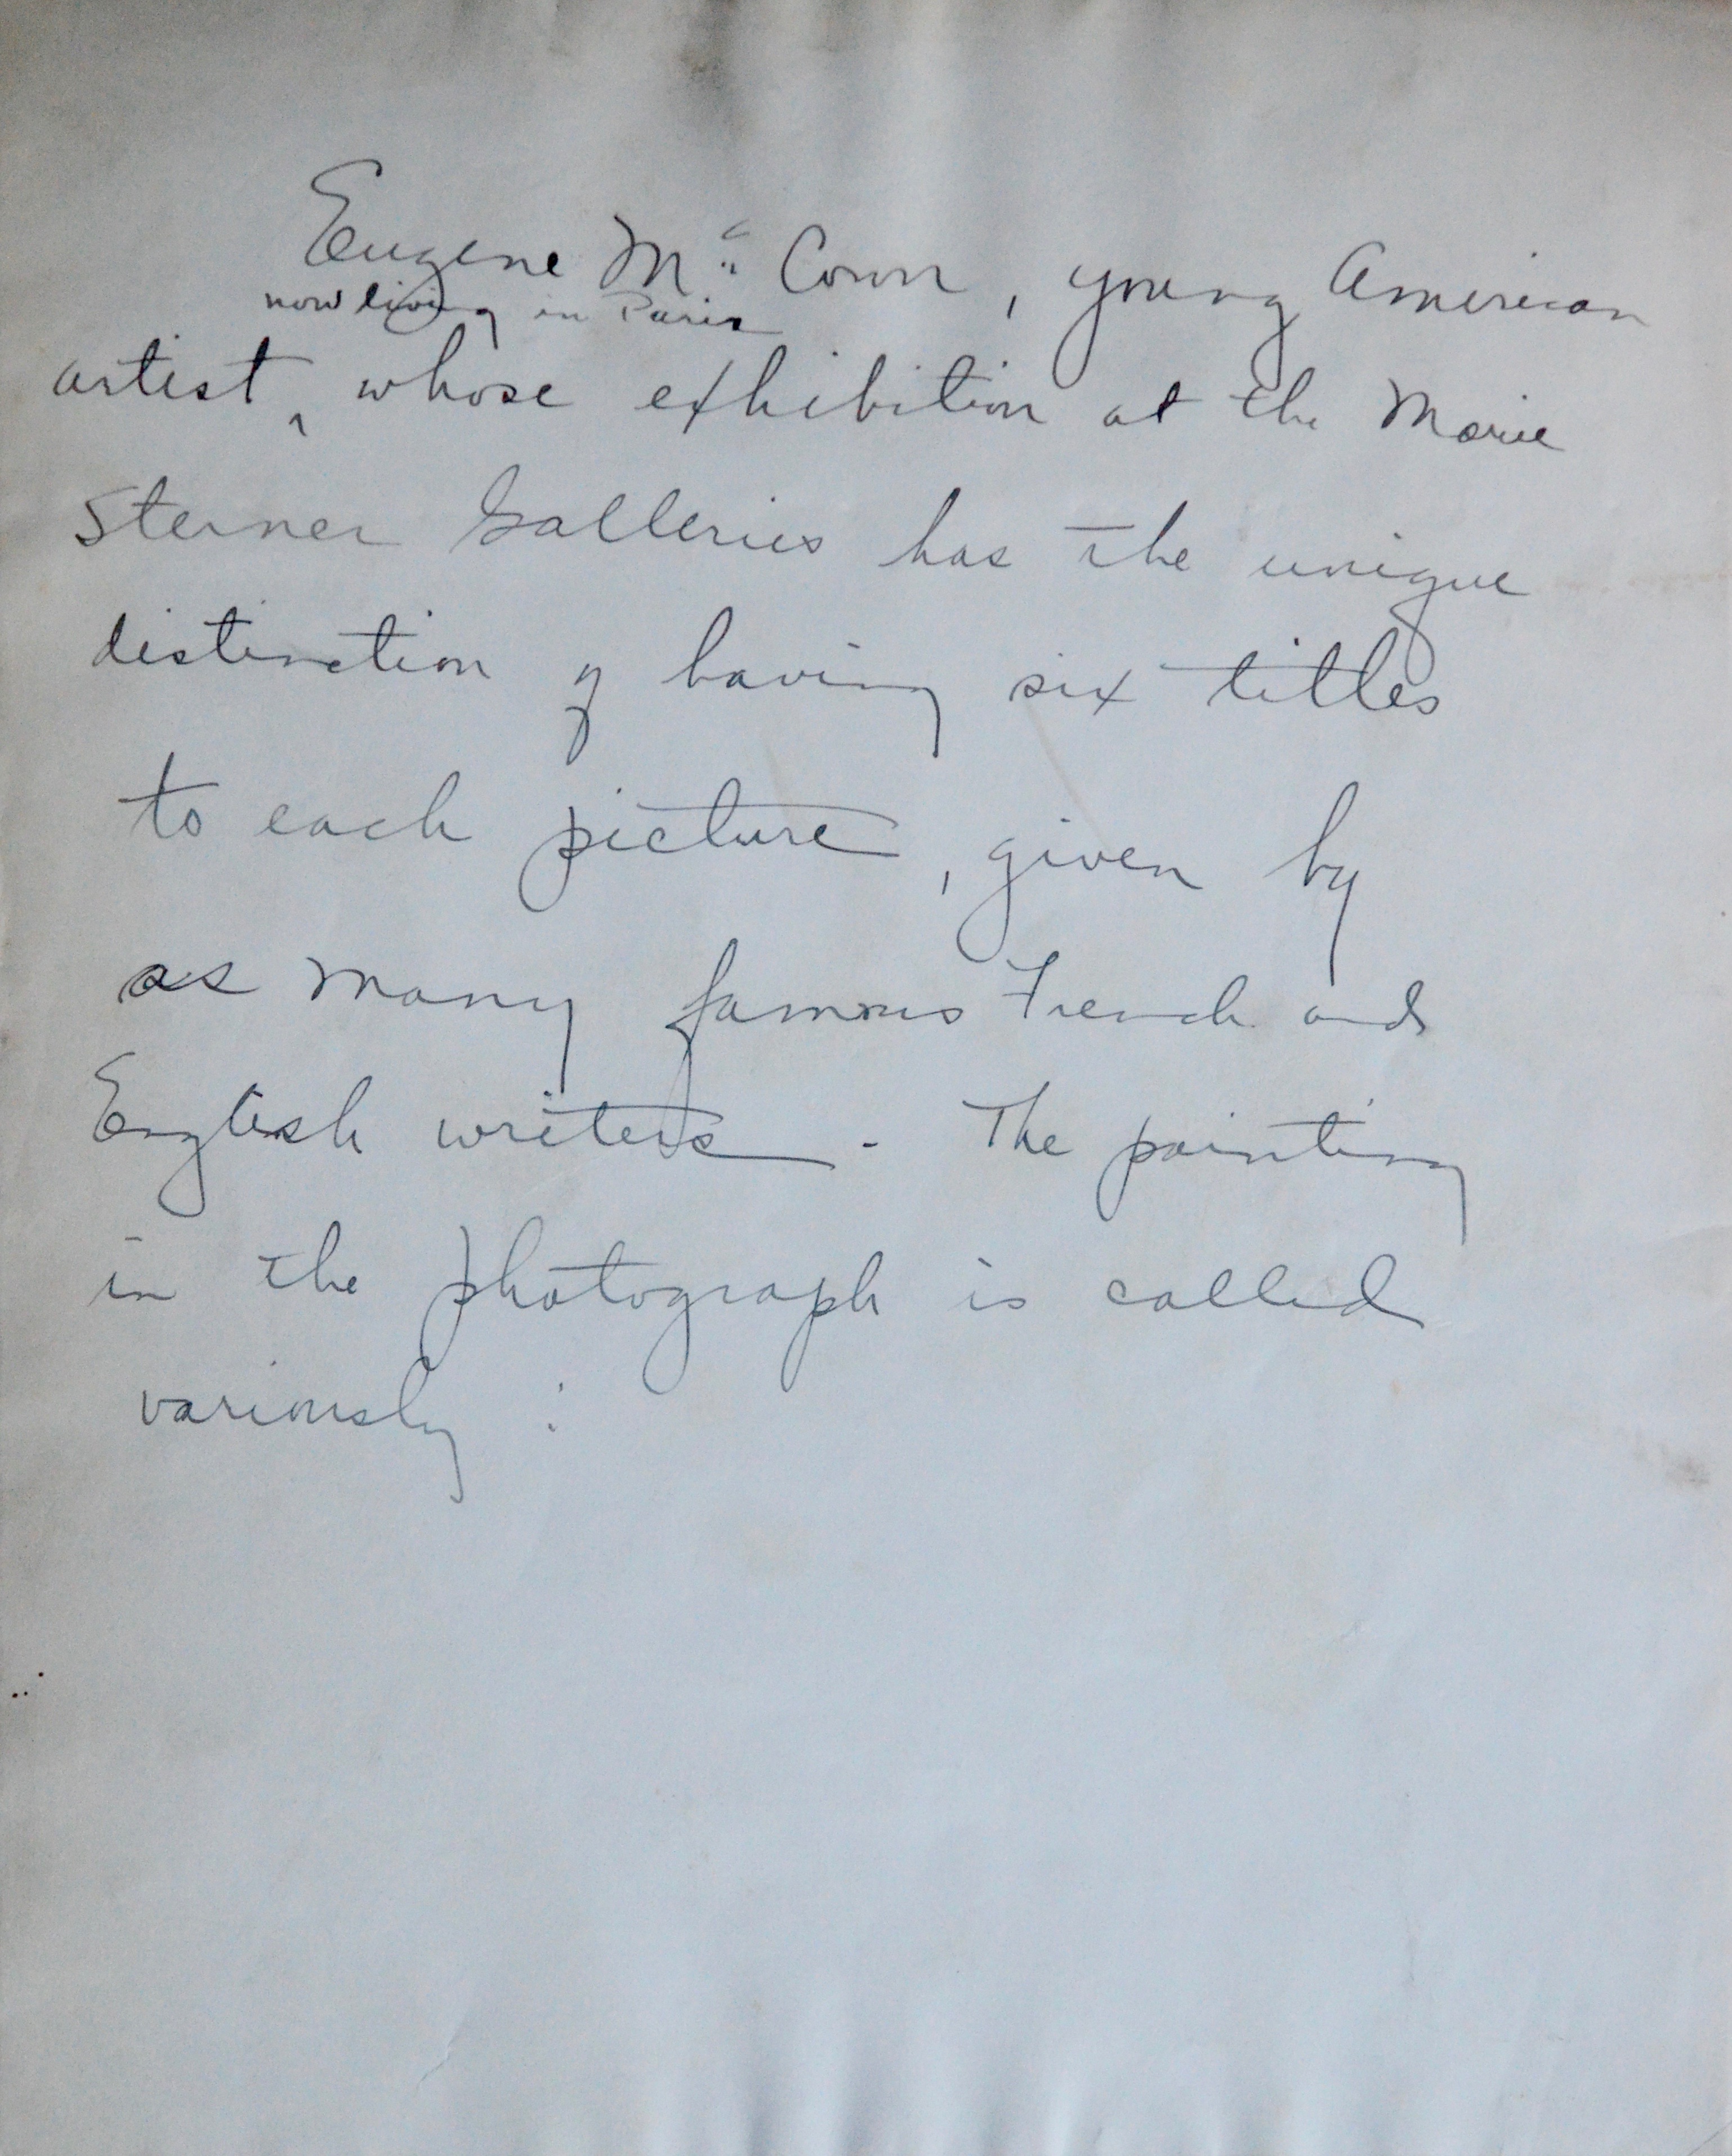 Eugene Mc Cown, young American
now living in Paris
artist, whose exhibition at the Marie
Sterner Galleries has the unique
distinction of having six titles
to each picture, given by
as many famous French and
English writers. The painting
in the photograph is called
variously :